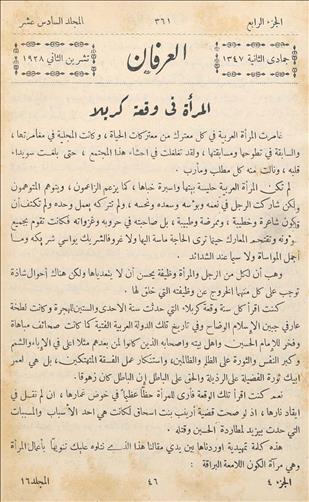 الجزء الرابع ٣٦١ المجلد السادس عشر
جمادى الثانية ١٣٤٧
العرفان
تشرين الثاني ١٩٢٨
المرأة فى وقعة كربلا
غامرت المرأة العربية في كل معترك من معتركات الحياة ، وكانت المجلية في مغامرتها ،
والسابقة في تطوحها ومسابقتها ، ولقد تغلغلت في احشاء هذا المجتمع ، حتى بلغت سويداء
قلبه ، ونالت منه كل مطلب ومأرب .
لم تكن المرأة العربية حليسة بيتها واسيرة خباها ، كما يزعم الزاعمون ، ويتوهم المتوهمون
ولكن شاركت الرجل في نعمه وبؤسه وسعده ونحسه ، ولم تتركه يعمل وحده ولم تكتف أن
تكون شاعرة وخطيبة ، وممرضة وطبيبة ، بل صاحبته في حروبه وغزواته فكانت تقوم بجميع
وتقتحم المعارك حينما ترى الحاجة ماسة اليها ولا غرو فالشريك يواسي شريكه ومما
اجمل المواساة ولا سيما عند الشدائد
وهب أن لكل من الرجل والمرأة وظيفة يحسن أن لا يتعداها ولكن هناك أحوال شاذة
توجب على كل منهما الخروج عن وظيفته التي خلق لها .
كنت اقرأ كل سنة وقعة كربلاء التي حدثت سنة الاحدى والستين للهجرة وكانت لطخة
عار في جبين الإسلام الوضاح وفي تاريخ تلك الدولة العربية الفتية كما كانت صحائف مباهاة
وفخر للإمام الحسين واهل بيته واصحابه الذين كانوا لمن بعدهم مثلا اعلى في الإباء والشمم
وكبر النفس والثورة على الظلم والظالمين ، واستنكار عمل الفسقة المتهتكين ، بل هي لعمر
ابيك ثورة الفضيلة على الرذيلة والحق على الباطل إن الباطل كان زهوقا .
نعم كنت أقرأ تلك الوقعة فأرى للمرأة حظاً عظيما في خوض غمارها ، ان لم نقل في
ايقاد نارها ، اذ لو صحت قضية أرينب بنت اسحاق لكانت هي احد الأسباب والمسببات
التي حدت بيزيد لمطاردة الحسين وقتله .
هذه كلمة تمهيدية اوردناها بين يدي مقالنا هذا الذي نتلوه عليك تنويهاً بأعمال المرأة
وهي مرآة الكون اللامعة البراقة :
الجزء ٤ ٤٦ المجلد ١٦